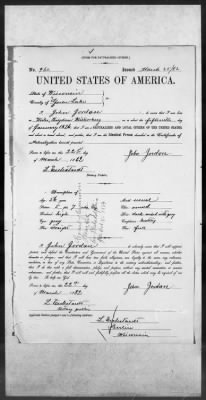 [FORM FOR NATURALIZED CITIZEN.]
No. 960 Issued March 25/82
UNITED STATES OF AMERICA.
State of Wisconsin
County of Green Lake
I, John Jordan, do swear that I was
born in
on or about the fifteenth day of
January 1826 that I am a NATURALIZED AND LOYAL CITIZEN OF THE UNITED STATES,
and about to travel abroad, and further, that I am the identical Person described in the Certificate of
Naturalization herewith presented.
Sworn to before me, this 22d
day of March 1882
John Jordan
Notary Public.
Description of
Age: 56 years
Mouth: usual
Stature: 5 ft 7 in
Chin: round
Forehead: high
Hair: dark mixed with gray
Eyes: gray
Complexion:
Nose: straight
Face: full
I, John Jordan, do solemnly swear that I will support,
protect, and defend the Constitution and Government of the United States against all enemies, whether
domestic or foreign; and that I will bear true faith, allegiance, and loyalty to the same, any ordinance,
resolution, or law of any State, Convention, or Legislature to the contrary notwithstanding; and further,
that I do this with a full determination, pledge, and purpose, without any mental reservation or evasion
whatsoever; and, further, that I will well and faithfully perform all the duties which may be required of
me by law: So help me God.
Sworn to before me, this 22d
day of March 1882
John Jordan
Notary public
Berlin
Wisconsin